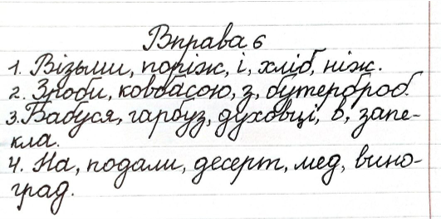 Вправа 6
1. Візьми, поріж, і, хліб, ніж.
2. Зроби, ковбасою, з, бутерброд.
3. Бабуся, гарбуз, духовці, в, запе-
кла.
4. На, подали, десерт, мед, вино-
град.